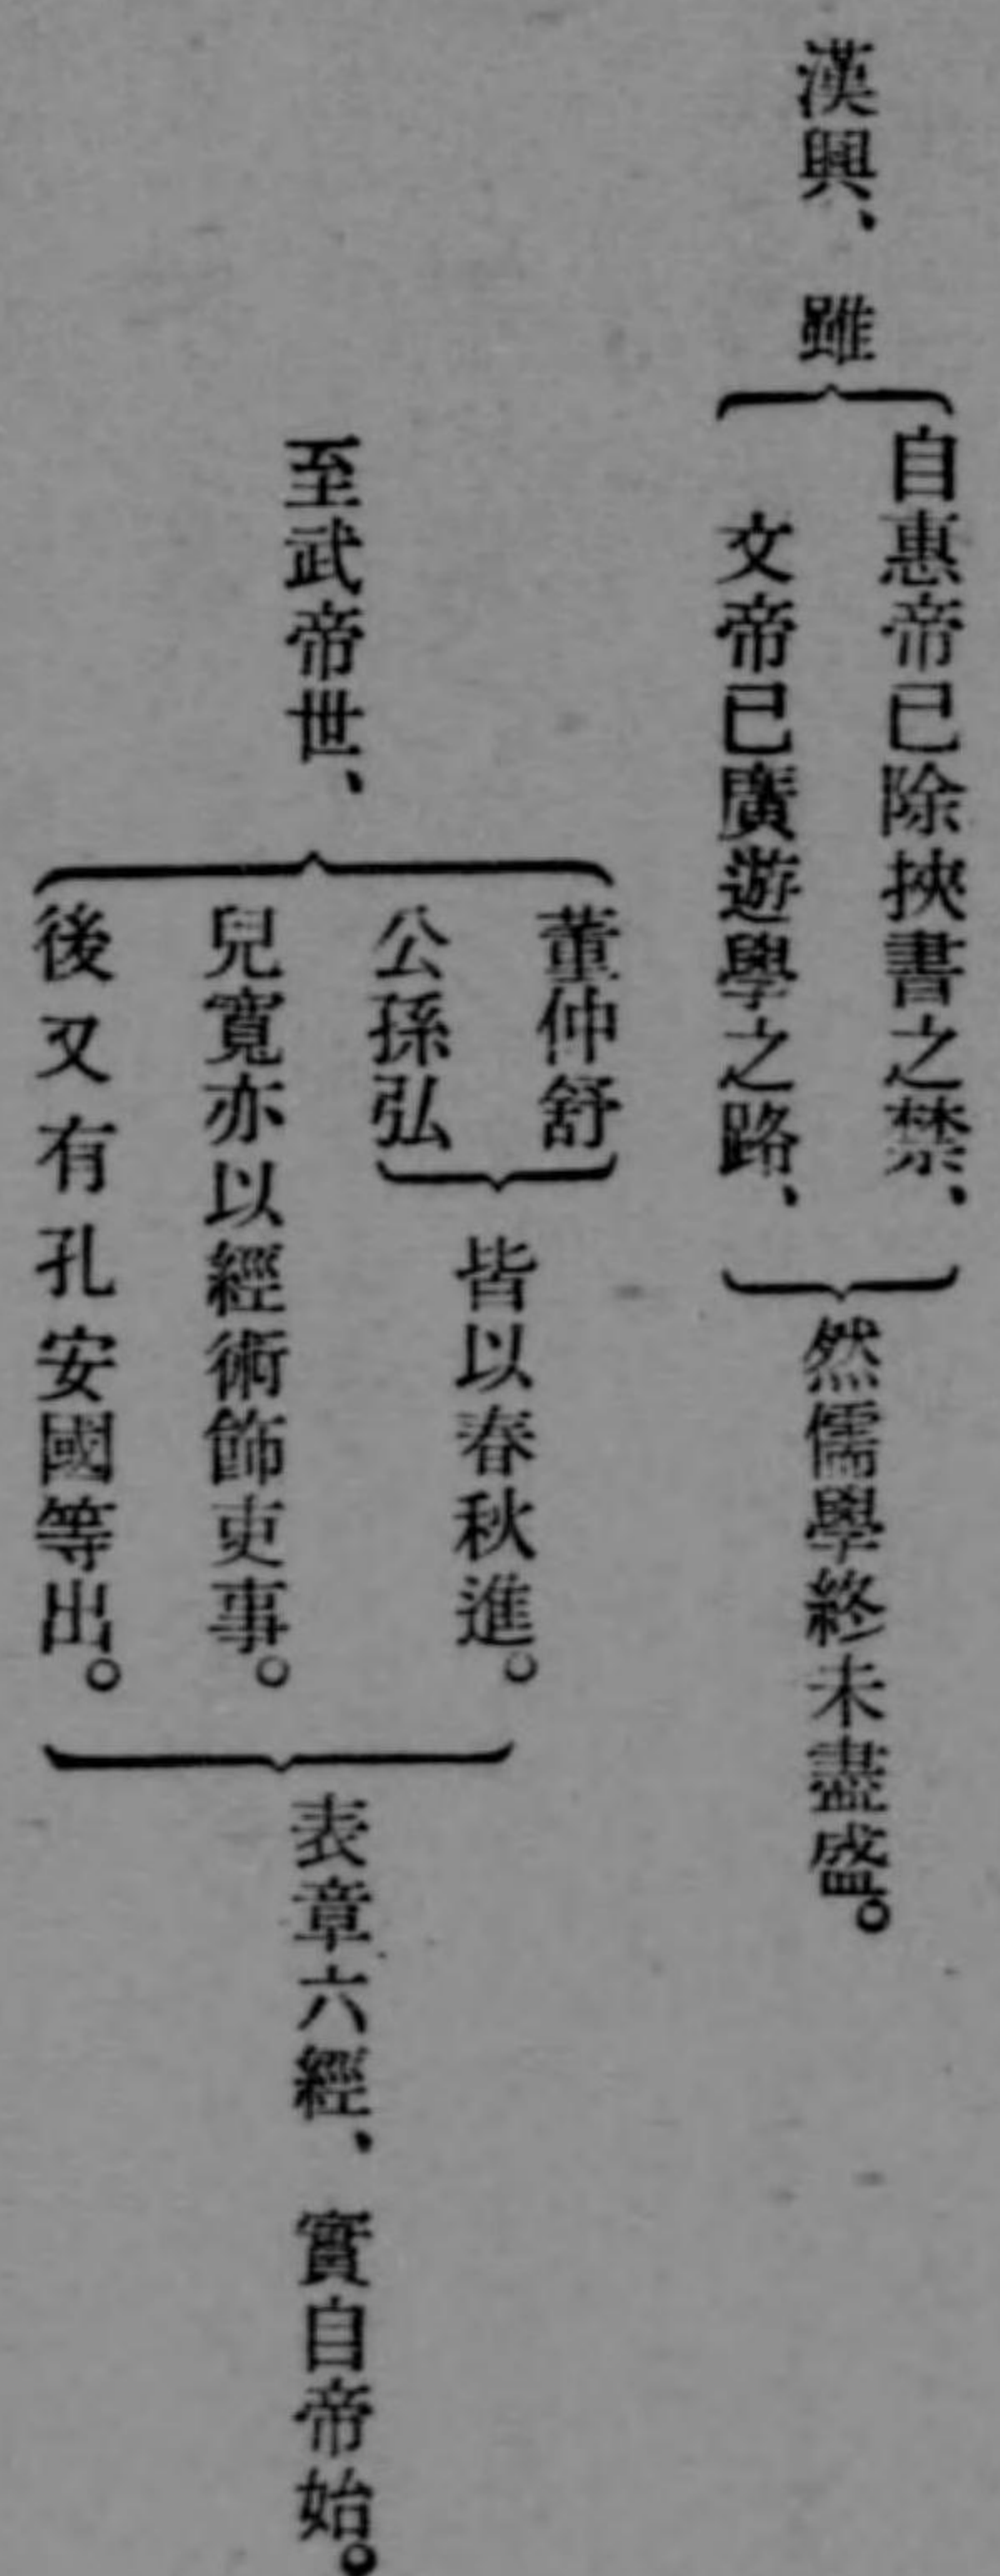 漢興、雖
自惠帝已除挾書之禁、
文帝已廣遊學之路、
然儒學終未盡盛。
至武帝世、
董仲舒
公孫弘
皆以春秋進。
兒寬亦以經術飾吏事。
後又有孔安國等出。
表章六經、實自帝始。